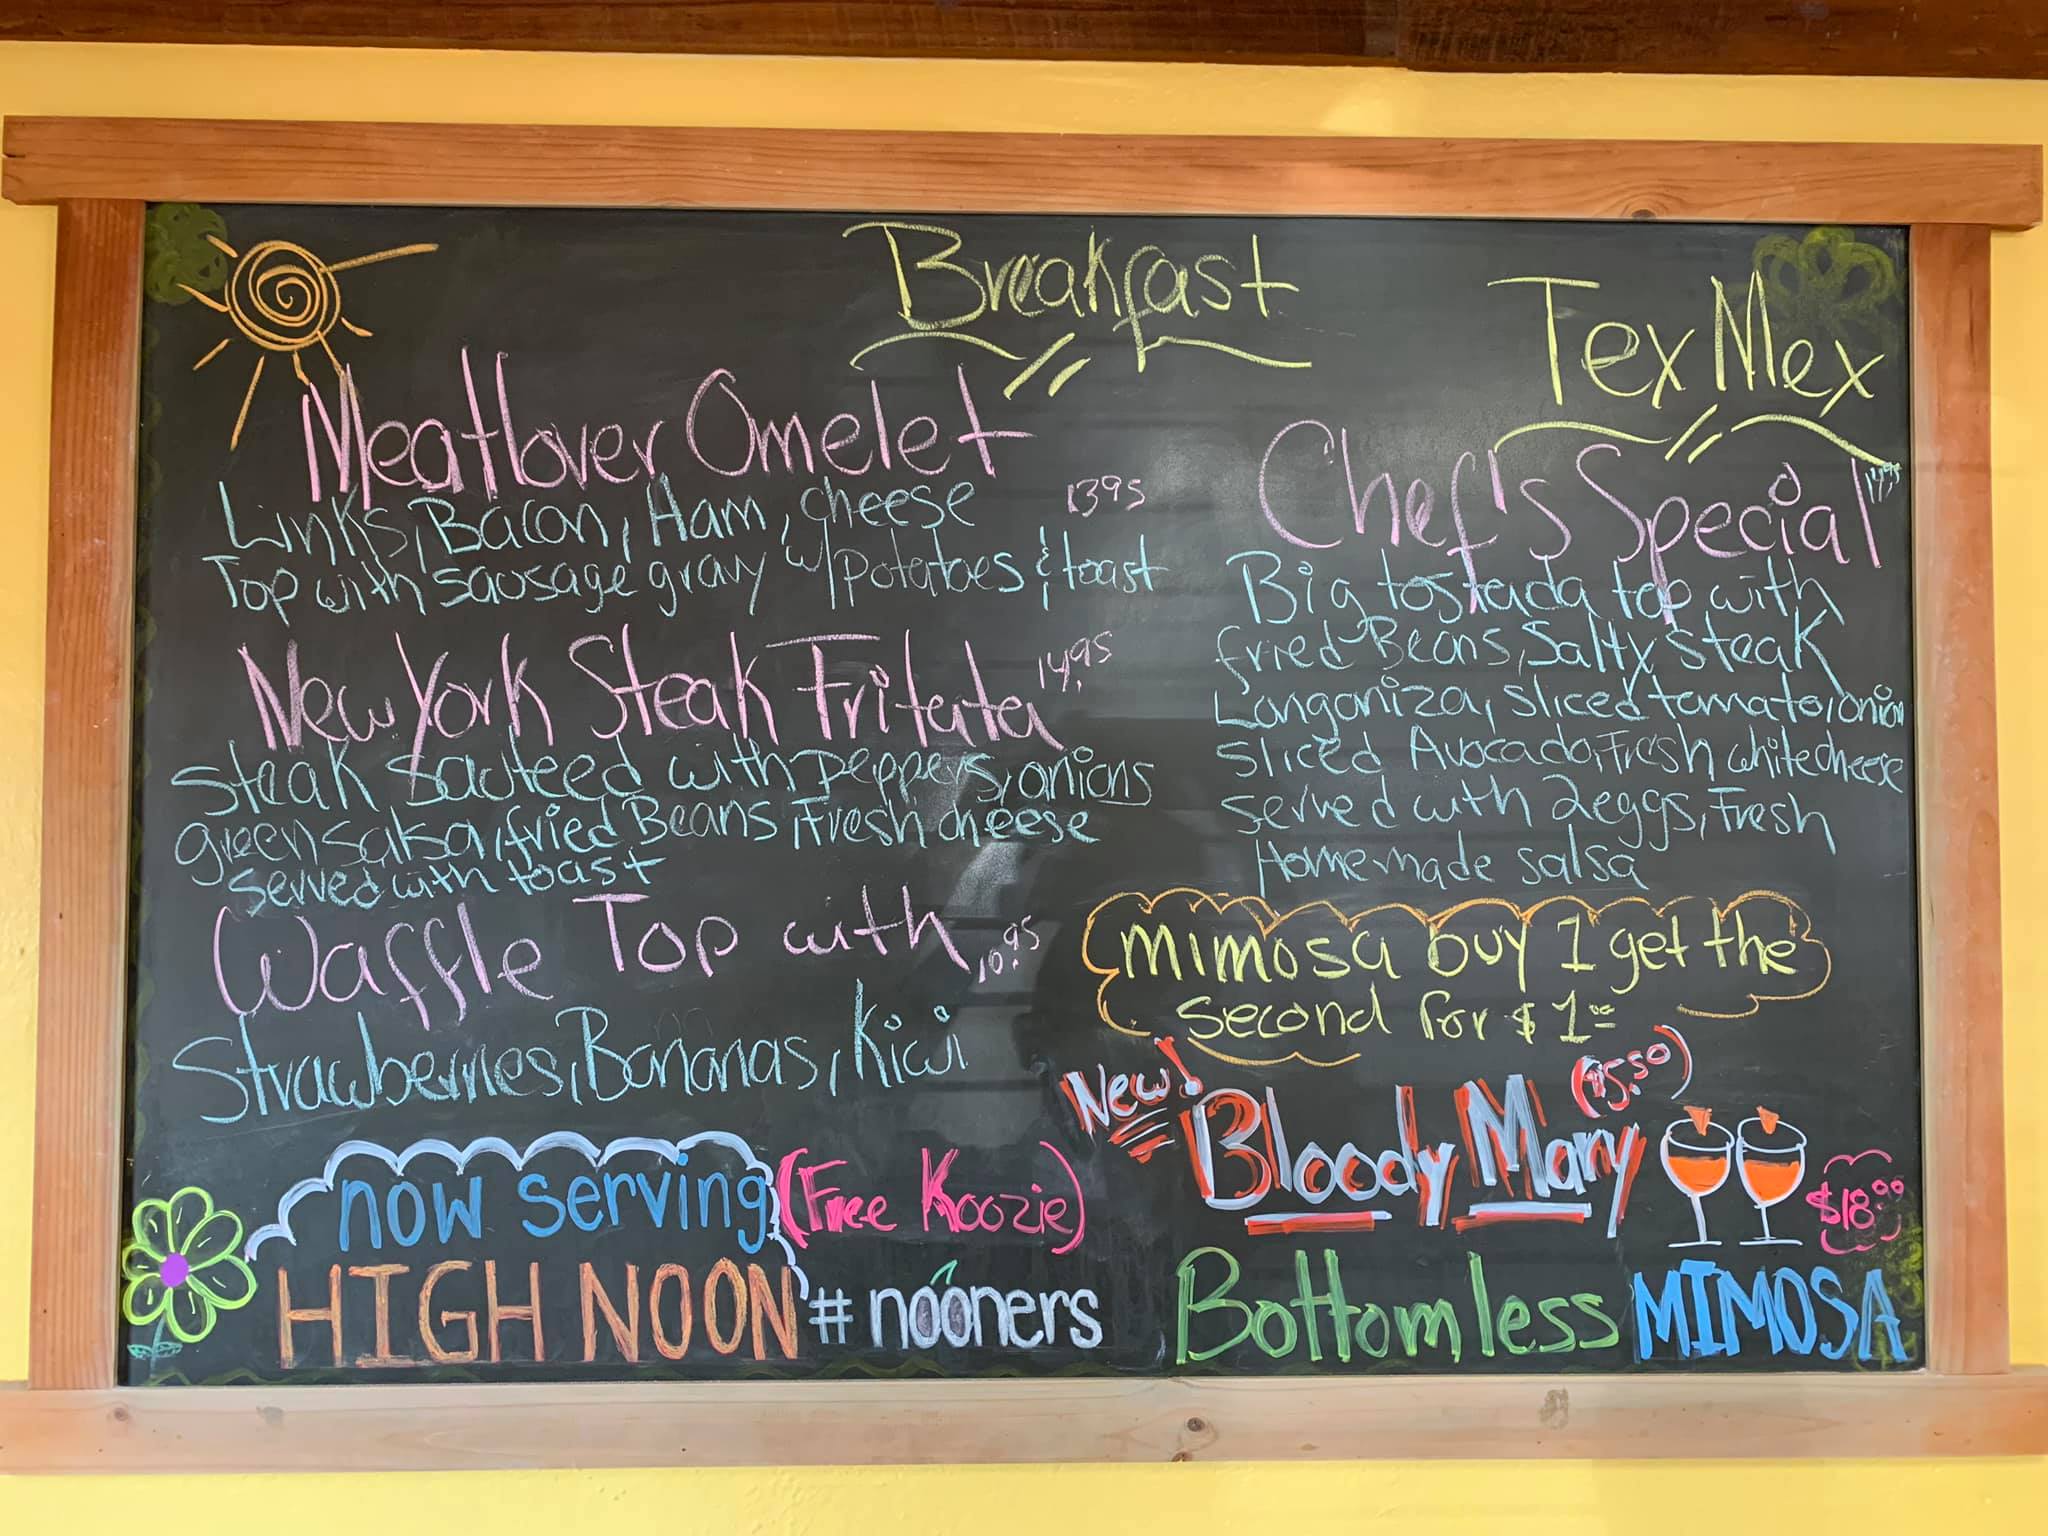 Breakfast
Meatlover Omelet
Links, Bacon, Ham, cheese 13.95
Top with sausage gravy w/potatoes & toast
New York Steak Fritata 14.95
Steak sauteed with peppers, onions
green salsa, fried Beans, Fresh cheese
served with toast
Waffle Top with 10.95
Strawberries, Bananas, Kiwi
now serving (Free Koozie)
HIGH NOON #nooners
Tex Mex
Chef's Special 14.95
Big tostada top with
fried Beans, Salty steak
Longaniza, sliced tomato, onion
sliced Avocado, Fresh white cheese
served with 2 eggs, Fresh
Homemade salsa
mimosa buy 1 get the
second for $1.00
New! Bloody Mary ($5.50)
$18.00
Bottomless MIMOSA